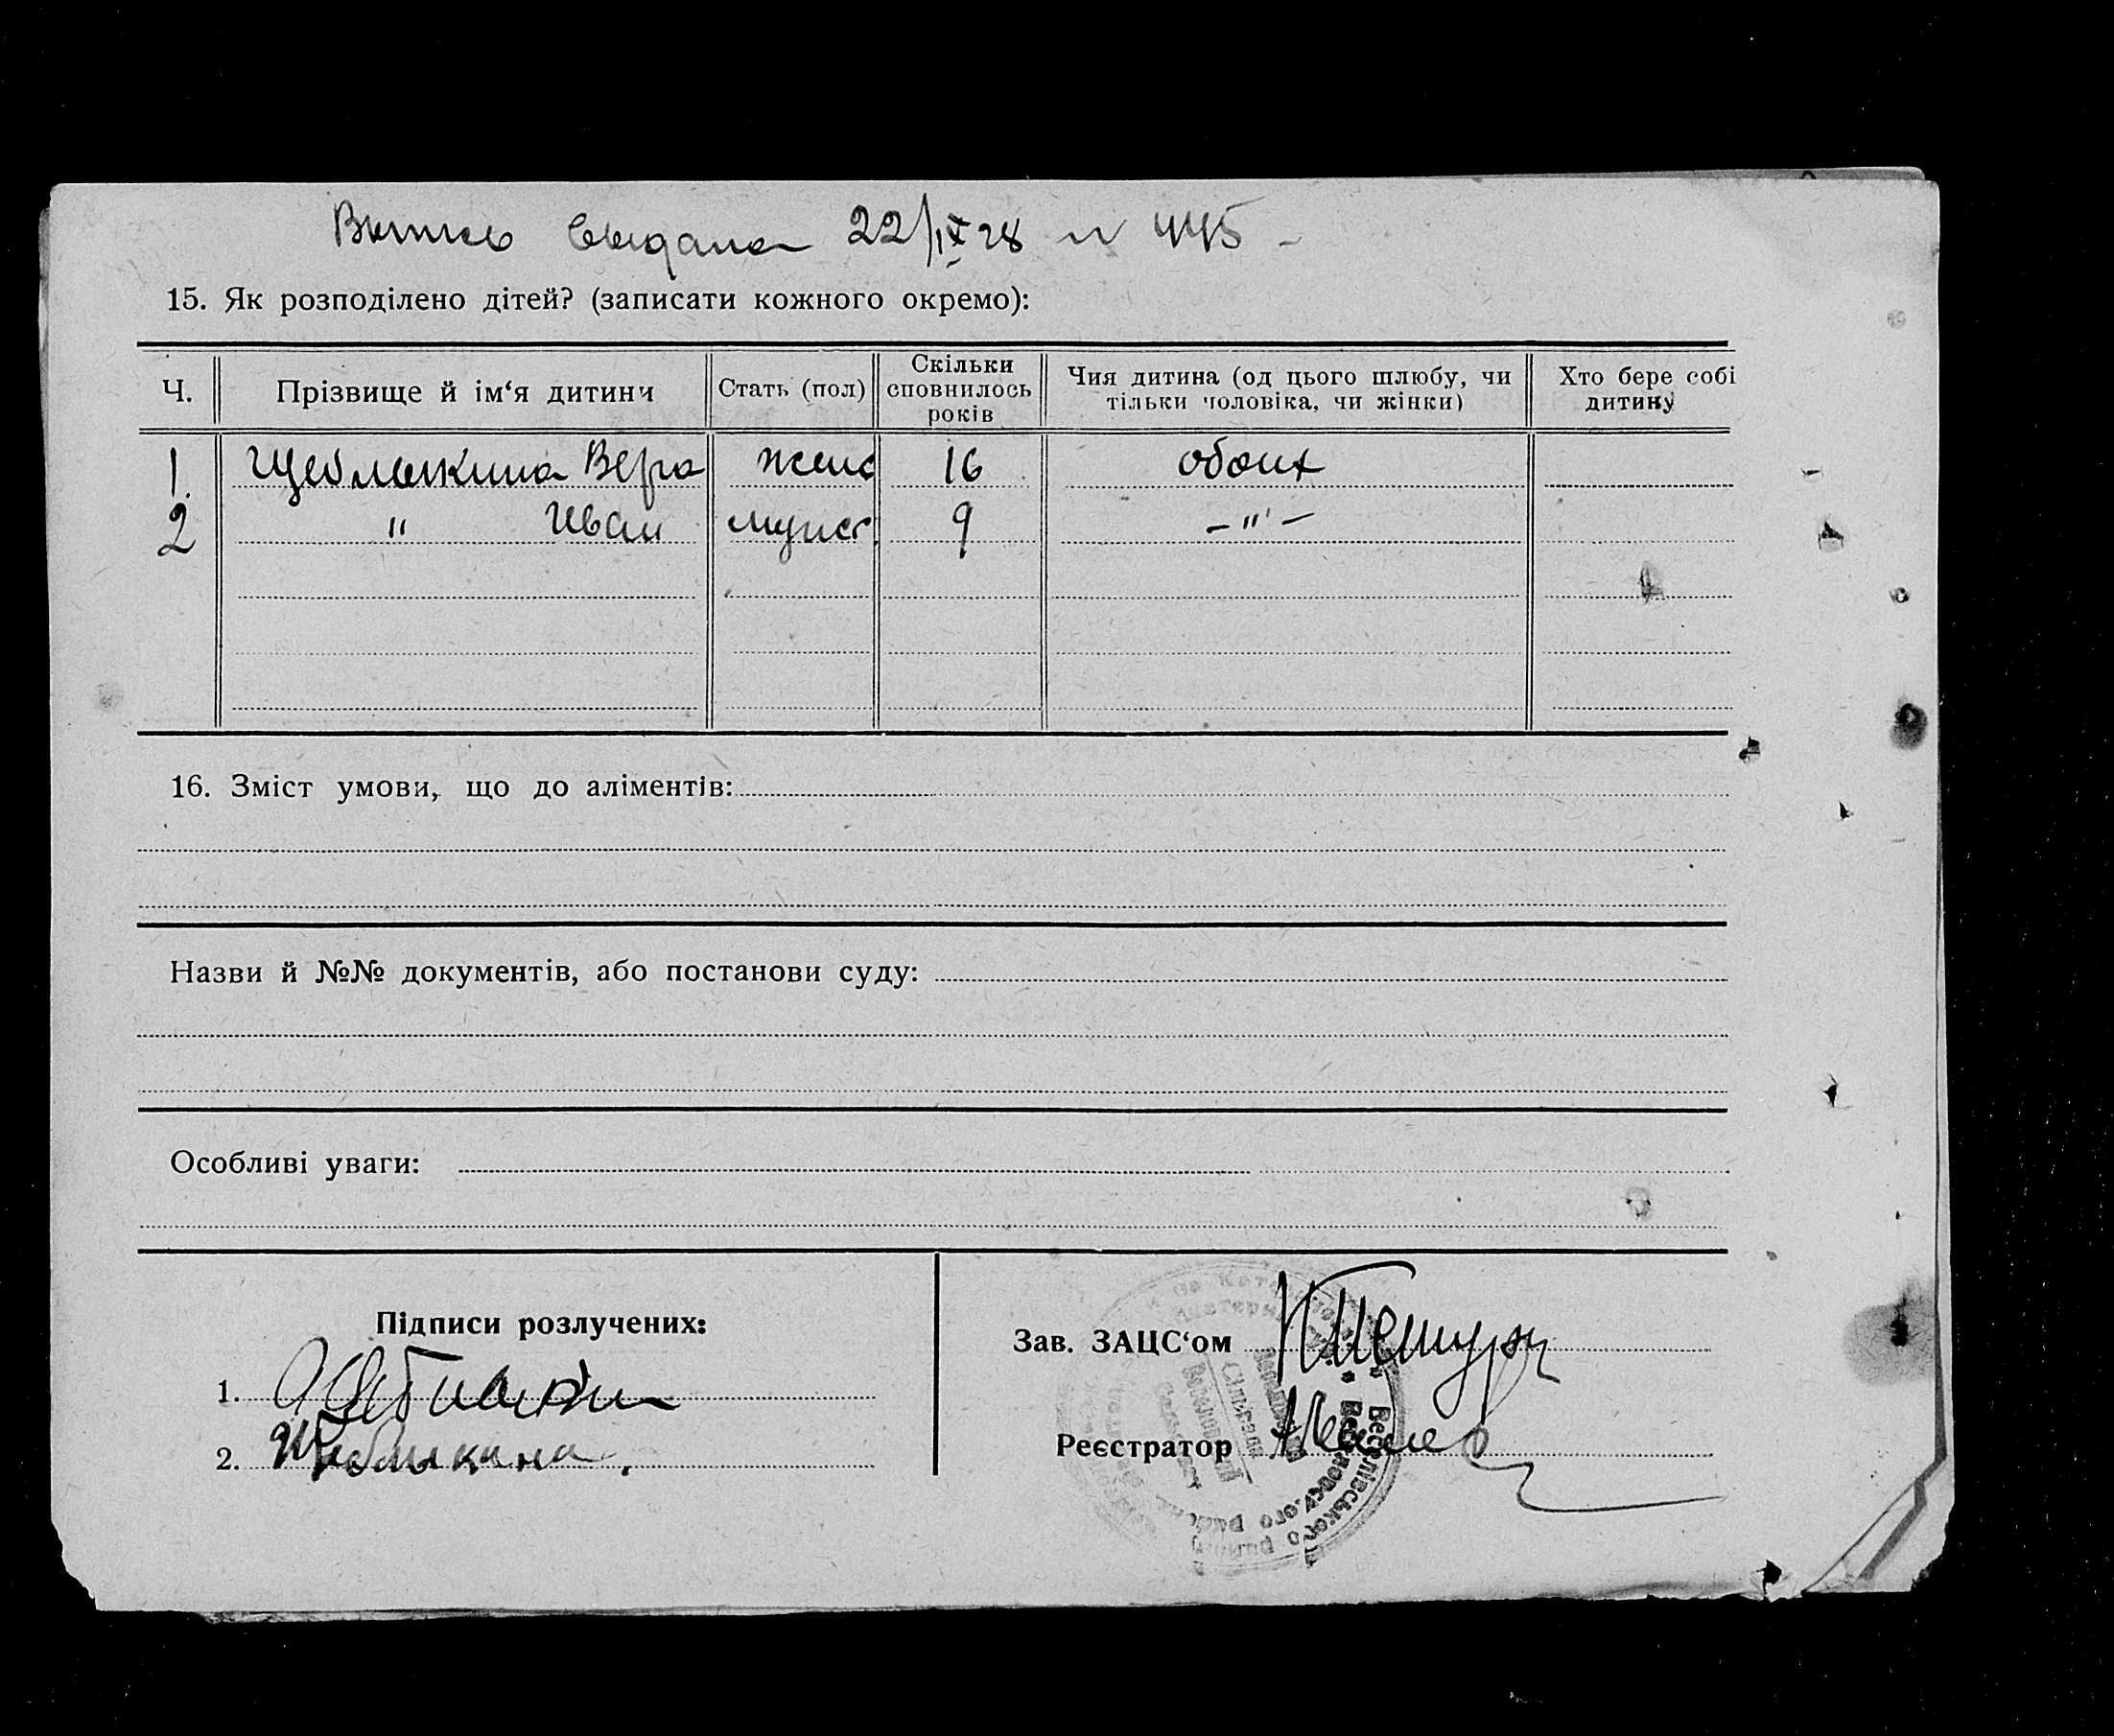 Выпись выдана 22/IX 28 N 445 –
15. Як розподілено дітей? (записати кожного окремо):
Ч. Прізвище й ім‘я дитини Стать (пол) Скільки сповнилось років Чия дитина (од цього шлюбу, чи тільки чоловіка, чи жінки) Хто бере собі дитину
1. Щеблыкина Вера женс 16 обоих
2 " Иван мужск. 9 – " –
16. Зміст умови, що до аліментів:
Назви й №№ документів, або постанови суду:
Особливі уваги:
Підписи розлучених:
1.
2. Щеблыкина.
Зав. ЗАЦС‘ом
Реєстратор
Веселівського